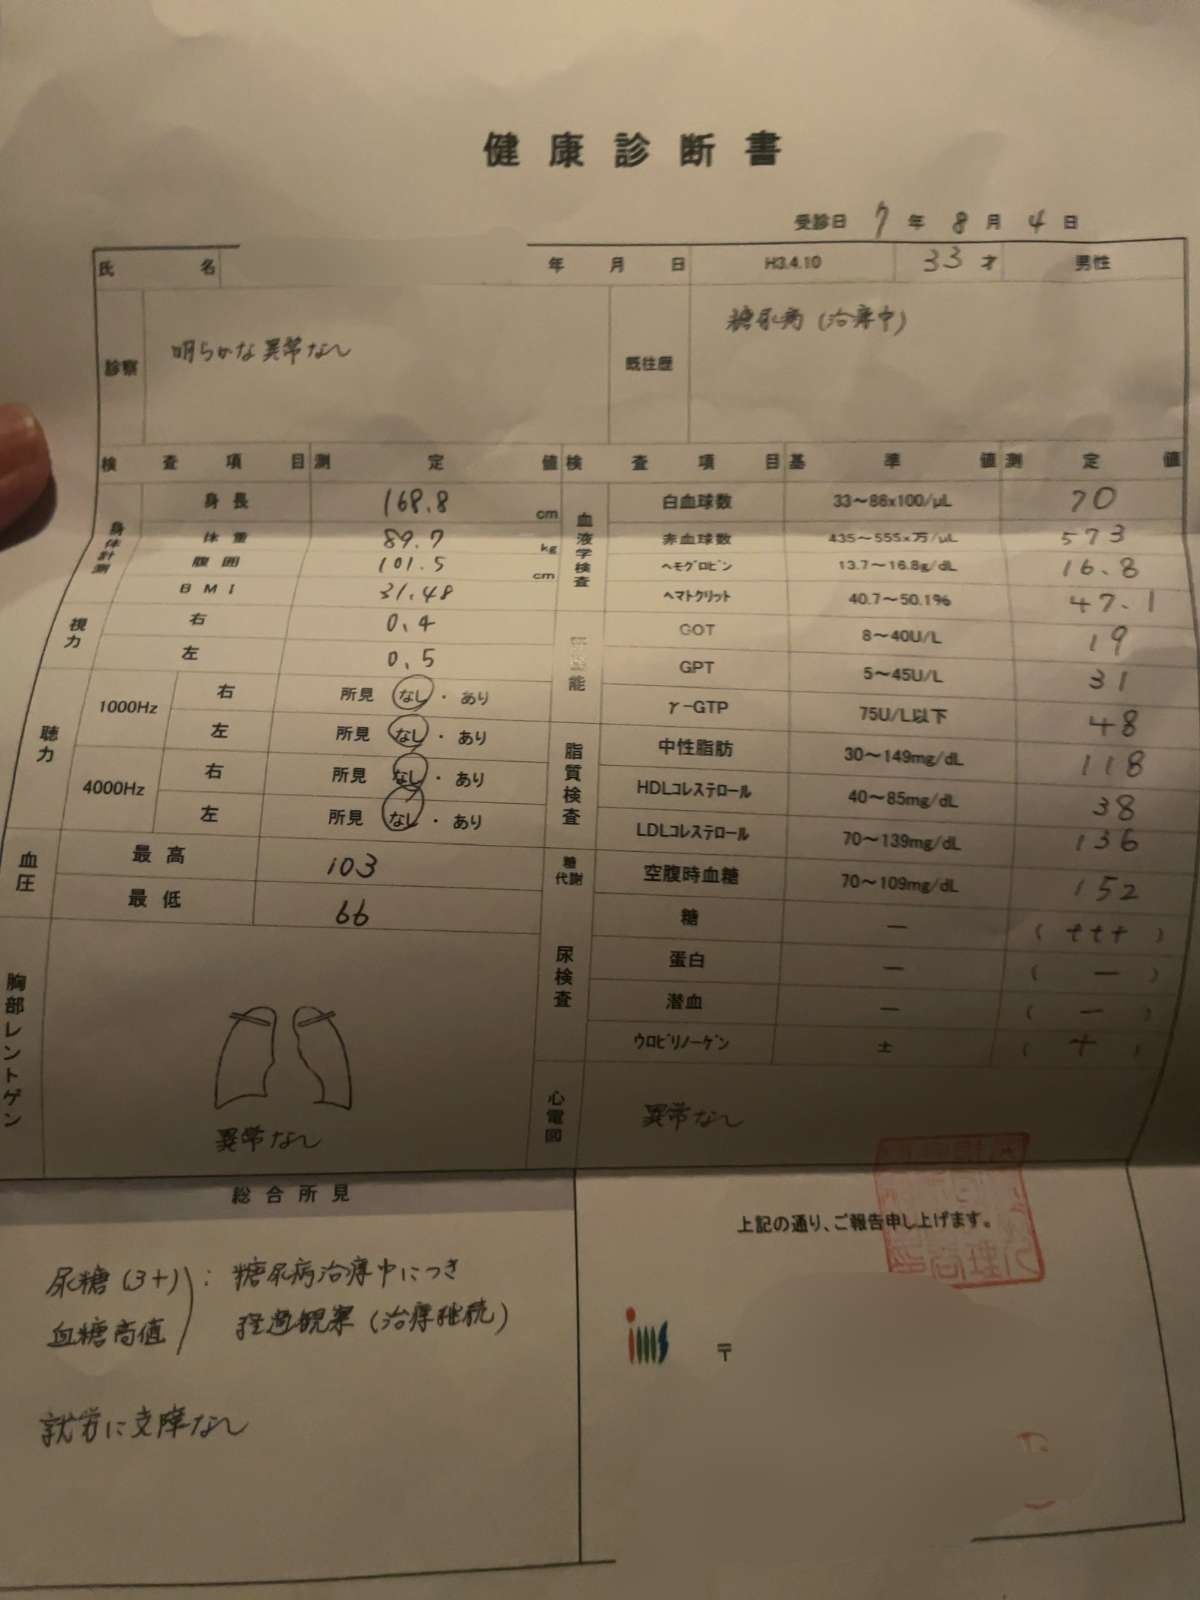 健康診断書
受診日 7年 8月 4日
氏名 年 月 日 H3.4.10 33才 男性
診察 明らかな異常なし 既往歴 糖尿病(治療中)
検査項目 測定値 検査項目 基準値 測定値
身体計測 身長 168.8 cm
体重 89.7 kg
腹囲 101.5 cm
BMI 31.48
視力 右 0.4
左 0.5
聴力 1000Hz 右 所見 なし・あり
左 所見 なし・あり
4000Hz 右 所見 なし・あり
左 所見 なし・あり
血圧 最高 103
最低 66
胸部レントゲン
異常なし
血液学検査 白血球数 33～86x100/μL 70
赤血球数 435～555x万/μL 573
ヘモグロビン 13.7～16.8g/dL 16.8
ヘマトクリット 40.7～50.1% 47.1
能 GOT 8～40U/L 19
GPT 5～45U/L 31
γ-GTP 75U/L以下 48
脂質検査 中性脂肪 30～149mg/dL 118
HDLコレステロール 40～85mg/dL 38
LDLコレステロール 70～139mg/dL 136
糖代謝 空腹時血糖 70～109mg/dL 152
尿検査 糖 － (+++)
蛋白 － (－)
潜血 － (－)
ウロビリノーゲン ± (+)
心電図 異常なし
総合所見
尿糖(3+) : 糖尿病治療中につき
血糖高値 経過観察(治療継続)
就労に支障なし
上記の通り、ご報告申し上げます。
ims 〒